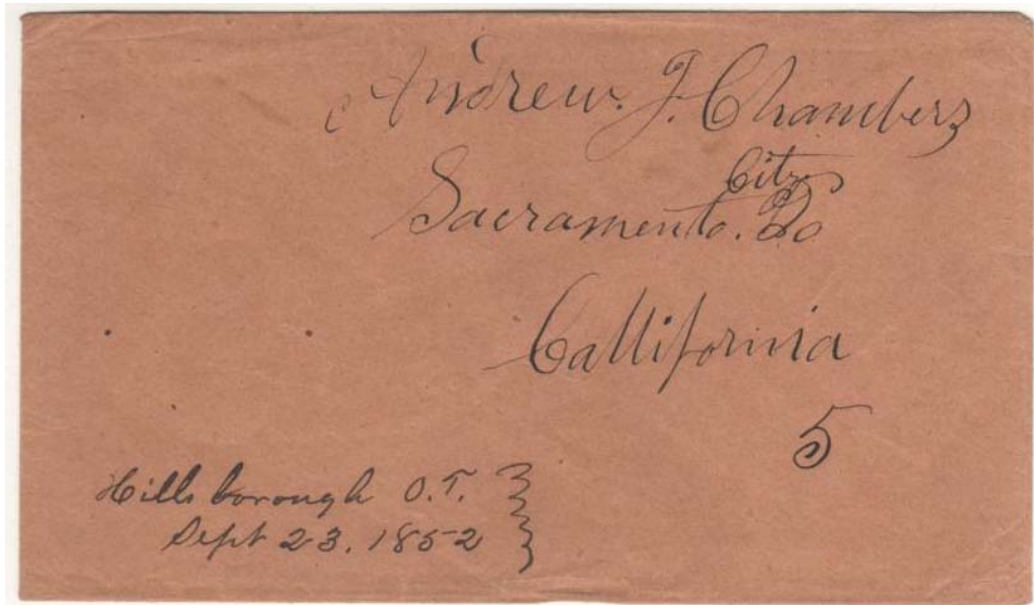 Andrew. J. Chambers
City
Sacramento.
Callifornia
5
Hillsborough O.T.
Sept 23. 1852